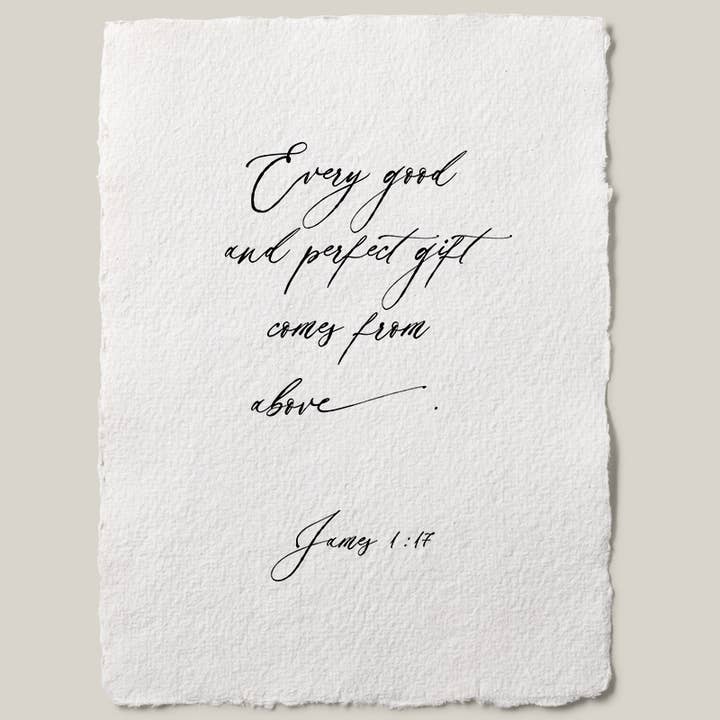 Every good
and perfect gift
comes from
above.
James 1:17